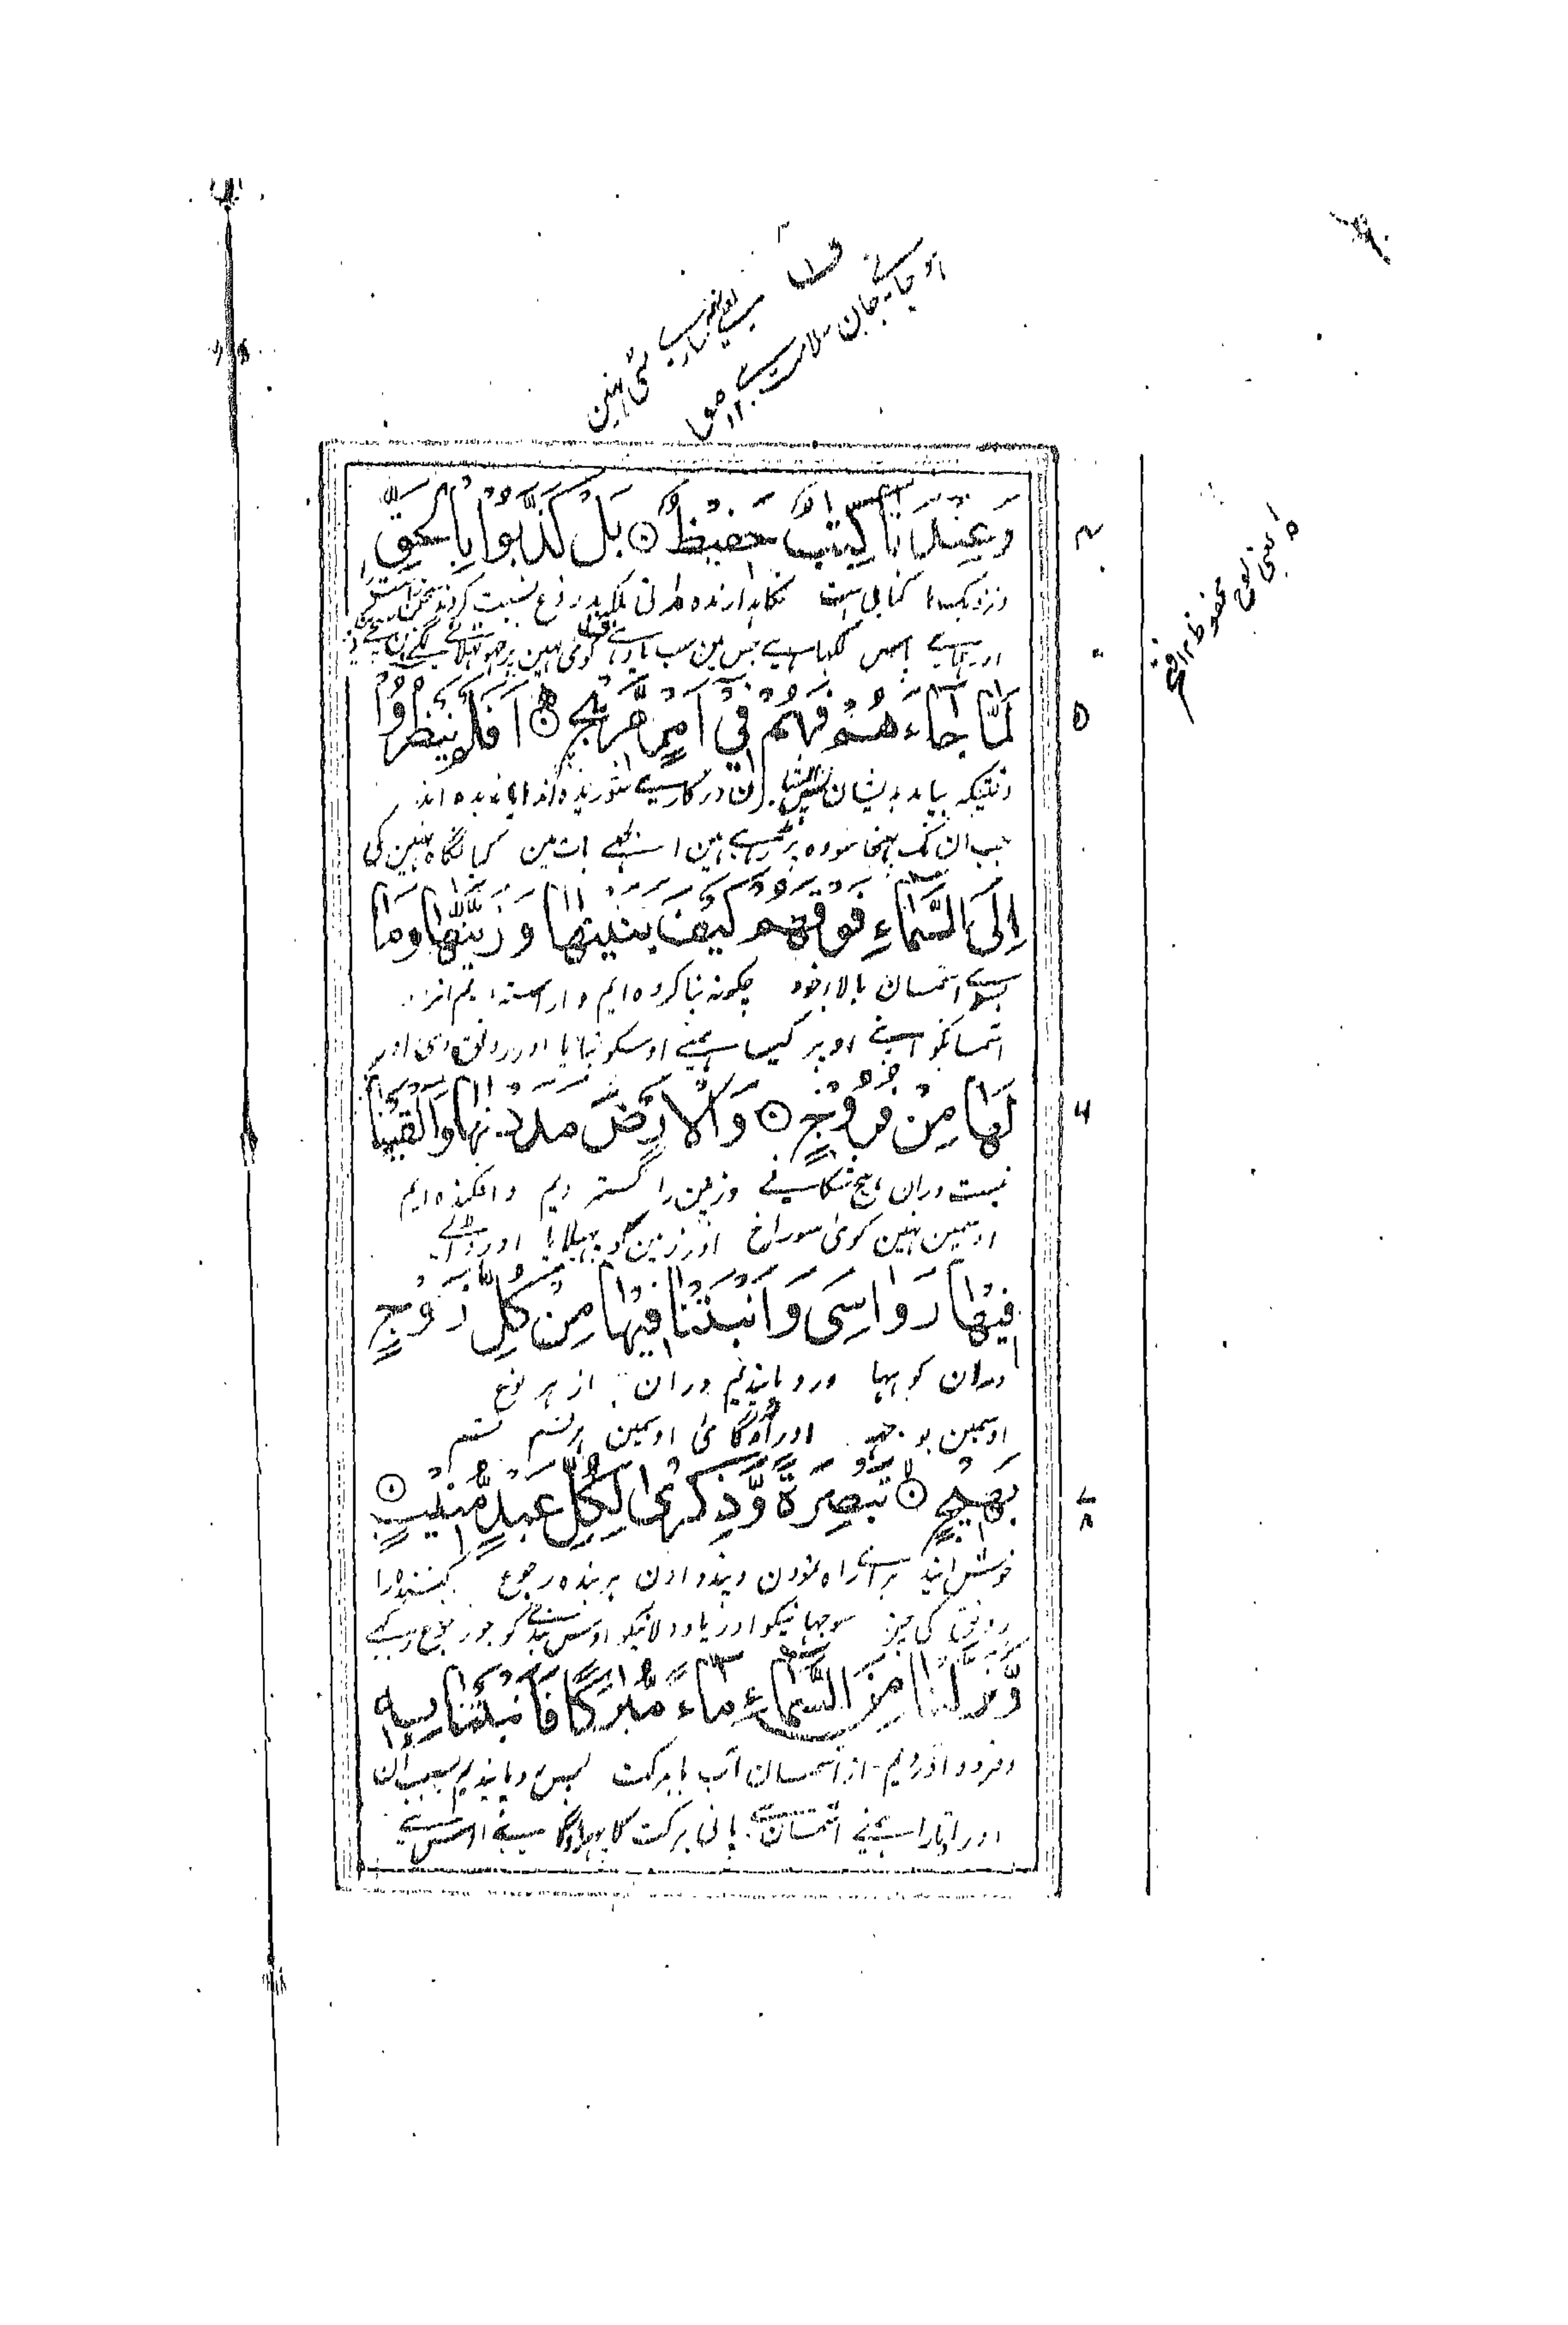 وَعِنْدَنَا كِتٰبٌ حَفِيْظٌ ۝ بَلْ كَذَّبُوْا بِالْحَقِّ
ونزدیک ما کتابی است نگاہدارندہ بلکہ بدروغ نسبت کردند سخن راست
اور ہمارے پاس لکھا ہے جس مین سب یاد ہے کوئی نہین پر جھوٹھلانے لگے
لَمَّا جَآءَهُمْ فَهُمْ فِيْٓ اَمْرٍ مَّرِيْجٍ ۝ اَفَلَمْ يَنْظُرُوْٓا
وقتیکہ بیامد بدیشان پس ایشان در کارے شوریدہ اند ایا ندیدہ اند
جب ان تک پہنچا سو وہ پڑ رہے ہین الجھے بات مین کیا نگاہ نہین کی
اِلَى السَّمَآءِ فَوْقَهُمْ كَيْفَ بَنَيْنٰهَا وَزَيَّنّٰهَا وَمَا
بسوے آسمان بالاے خود چگونہ بنا کردہ ایم و آراستہ ایم آنرا
آسمانکو اپنے اوپر کیسا ہمنے اوسکو بنایا اور رونق دی اور
لَهَا مِنْ فُرُوْجٍ ۝ وَالْاَرْضَ مَدَدْنٰهَا وَاَلْقَيْنَا
نیست دران ہیچ شگافے وزمین را گستردیم وافگندہ ایم
اوسمین نہین کوئی سوراخ اور زمین کو پھیلایا اور ڈالے
فِيْهَا رَوَاسِيَ وَاَنْۢبَتْنَا فِيْهَا مِنْ كُلِّ زَوْجٍۭ
دران کوہہا ورویانیدیم دران از ہر نوع
اوسمین بوجھ اور اوگائی اوسمین ہر قسم قسم
بَهِيْجٍ ۝ تَبْصِرَةً وَّذِكْرٰى لِكُلِّ عَبْدٍ مُّنِيْبٍ ۝
خوش آیند براے راہ نمودن وپند دادن ہر بندہ رجوع کنندہ را
رونق کی چیز سوجھانیکو اور یاد دلانیکو اوس بندے کو جو رجوع رکھے
وَنَزَّلْنَا مِنَ السَّمَآءِ مَآءً مُّبٰرَكًا فَاَنْۢبَتْنَا بِهٖ
وفرود آوردیم از آسمان آب بابرکت پس رویانیدیم بسبب آن
اور اوتارا ہمنے آسمان سے پانی برکت کا پھر اوگائے ہمنے اوس سے